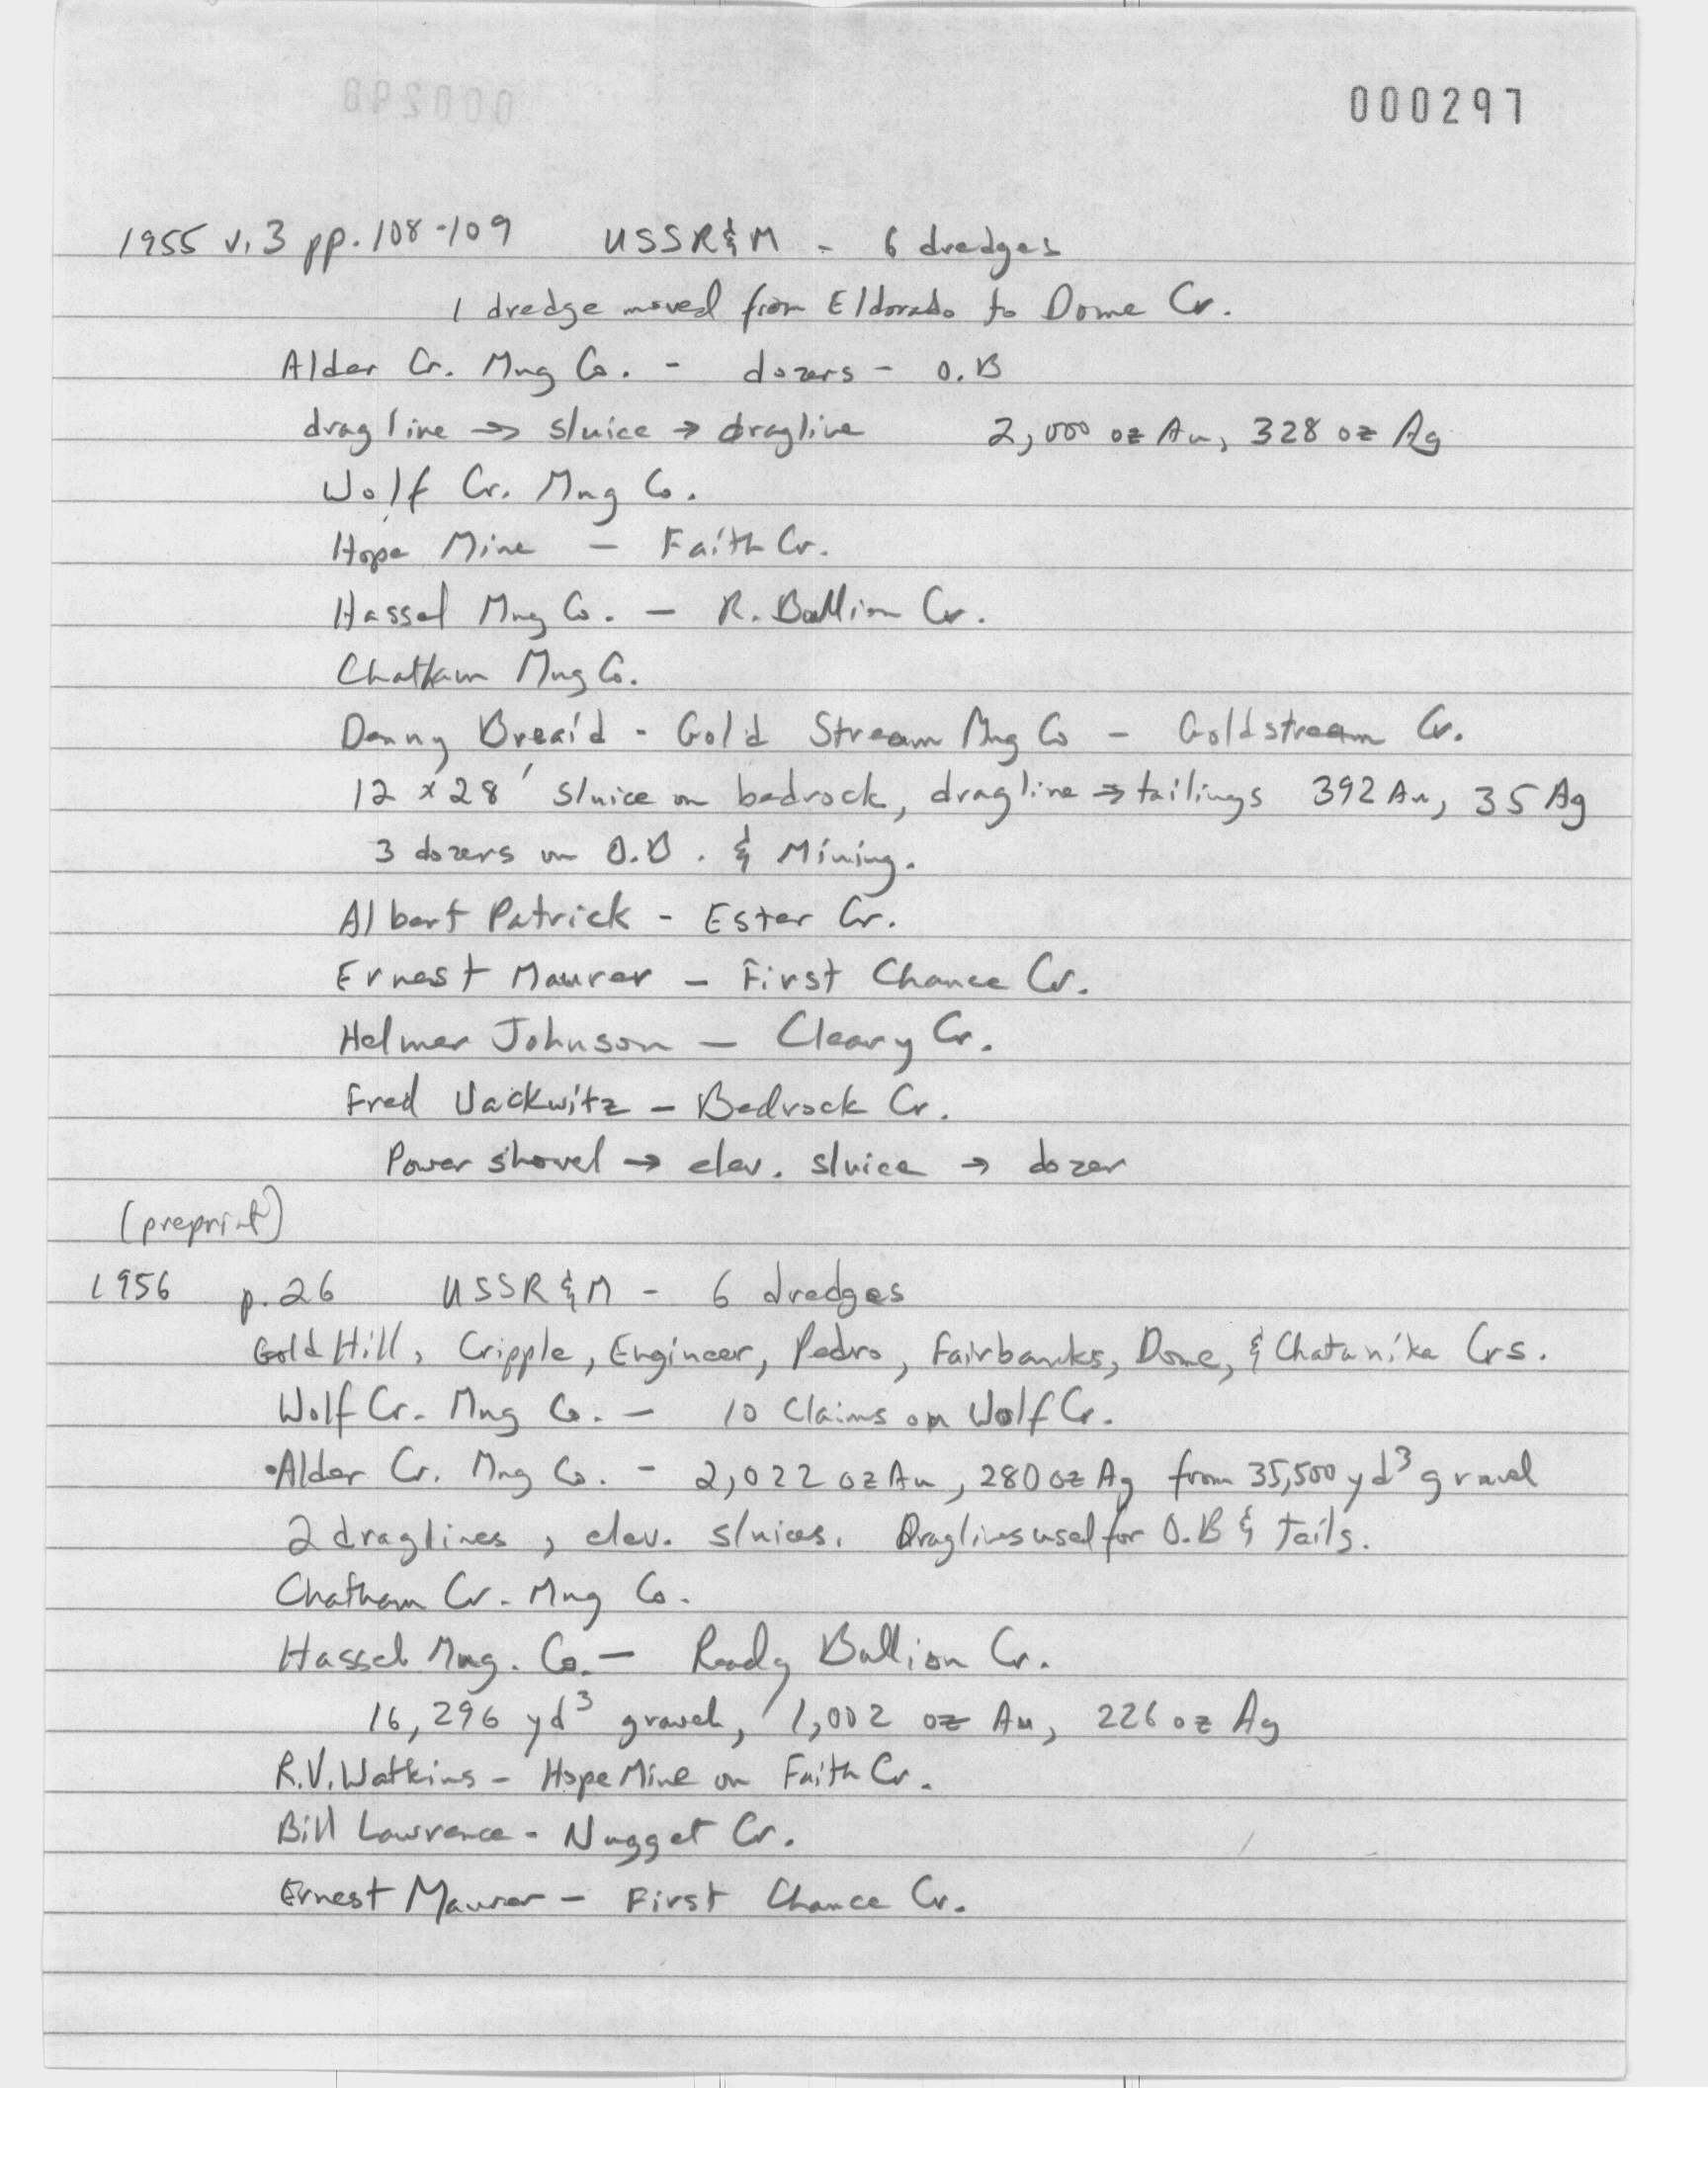 000298
000297
1955 v.3 pp.108-109 USSR&M - 6 dredges
1 dredge moved from Eldorado to Dome Cr.
Alder Cr. Mng Co. - dozers - O.B
dragline → sluice → dragline 2,000 oz Au, 328 oz Ag
Wolf Cr. Mng Co.
Hope Mine - Faith Cr.
Hassel Mng Co. - R. Bullion Cr.
Chatham Mng Co.
Danny Breaid - Gold Stream Mng Co - Goldstream Cr.
12 x 28' sluice on bedrock, dragline → tailings 392 Au, 35 Ag
3 dozers on O.B. & Mining.
Albert Patrick - Ester Cr.
Ernest Maurer - First Chance Cr.
Helmer Johnson - Cleary Cr.
Fred Vackwitz - Bedrock Cr.
Power shovel → elev. sluice → dozer
(preprint)
1956 p.26 USSR&M - 6 dredges
Gold Hill, Cripple, Engineer, Pedro, Fairbanks, Dome, & Chatanika Crs.
Wolf Cr. Mng Co. - 10 Claims on Wolf Cr.
•Alder Cr. Mng Co. - 2,022 oz Au, 280 oz Ag from 35,500 yd³ gravel
2 draglines, elev. sluices. Draglines used for O.B & Tails.
Chatham Cr. Mng Co.
Hassel Mng. Co. - Ready Bullion Cr.
16,296 yd³ gravel, 1,002 oz Au, 226 oz Ag
R.V. Watkins - Hope Mine on Faith Cr.
Bill Lawrence - Nugget Cr.
Ernest Maurer - First Chance Cr.